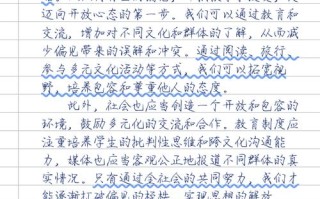 迈向开放心态的第一步。我们可以通过教育和
交流,增加对不同文化和群体的了解,从而减
少偏见带来的误解和冲突。通过阅读、旅行、
参与多元文化活动等方式,我们可以拓宽视
野,培养包容和尊重他人的态度。
此外,社会也应当创造一个开放和包容的
环境,鼓励多元化的交流和合作。教育制度应
注重培养学生的批判性思维和跨文化沟通能
力,媒体也应当客观公正地报道不同群体的真
实情况。只有通过全社会的共同努力,我们才
能逐渐打破偏见的桎梏,实现思想的解放